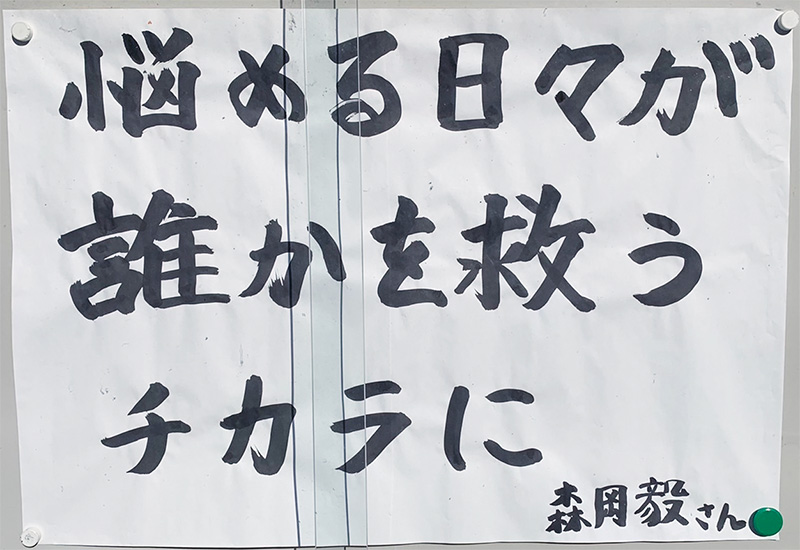 悩める日々が
誰かを救う
チカラに
森岡毅さん